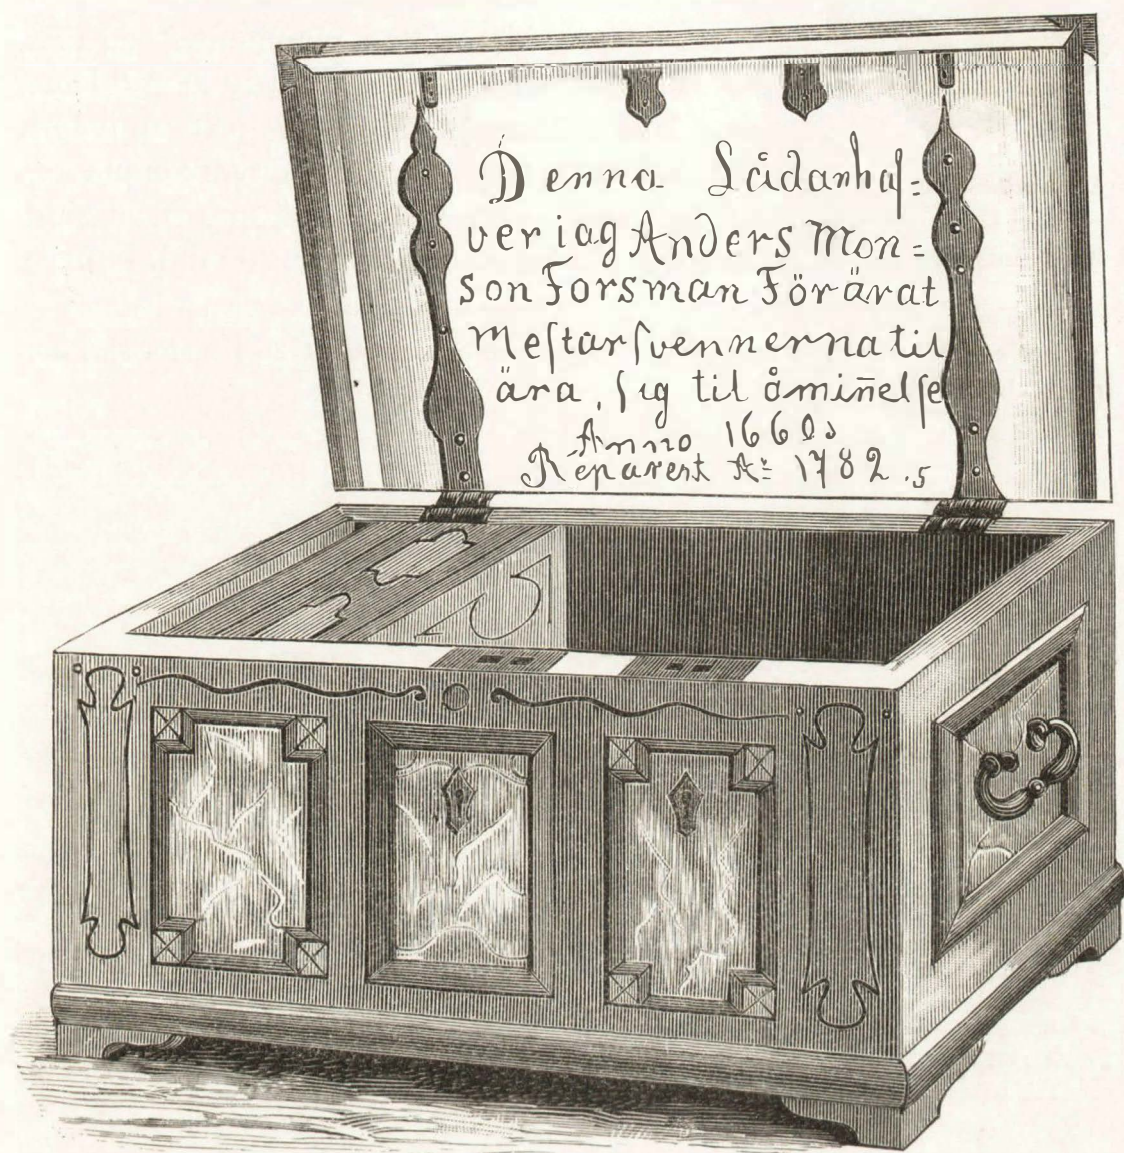 Denna Lådan haf=
ver iag Anders Mon=
son Forsman Förärat
Meſtarſvennerna til
ära, ſig til åmiñelſe
Anno 1660
Reparert Aº 1782.